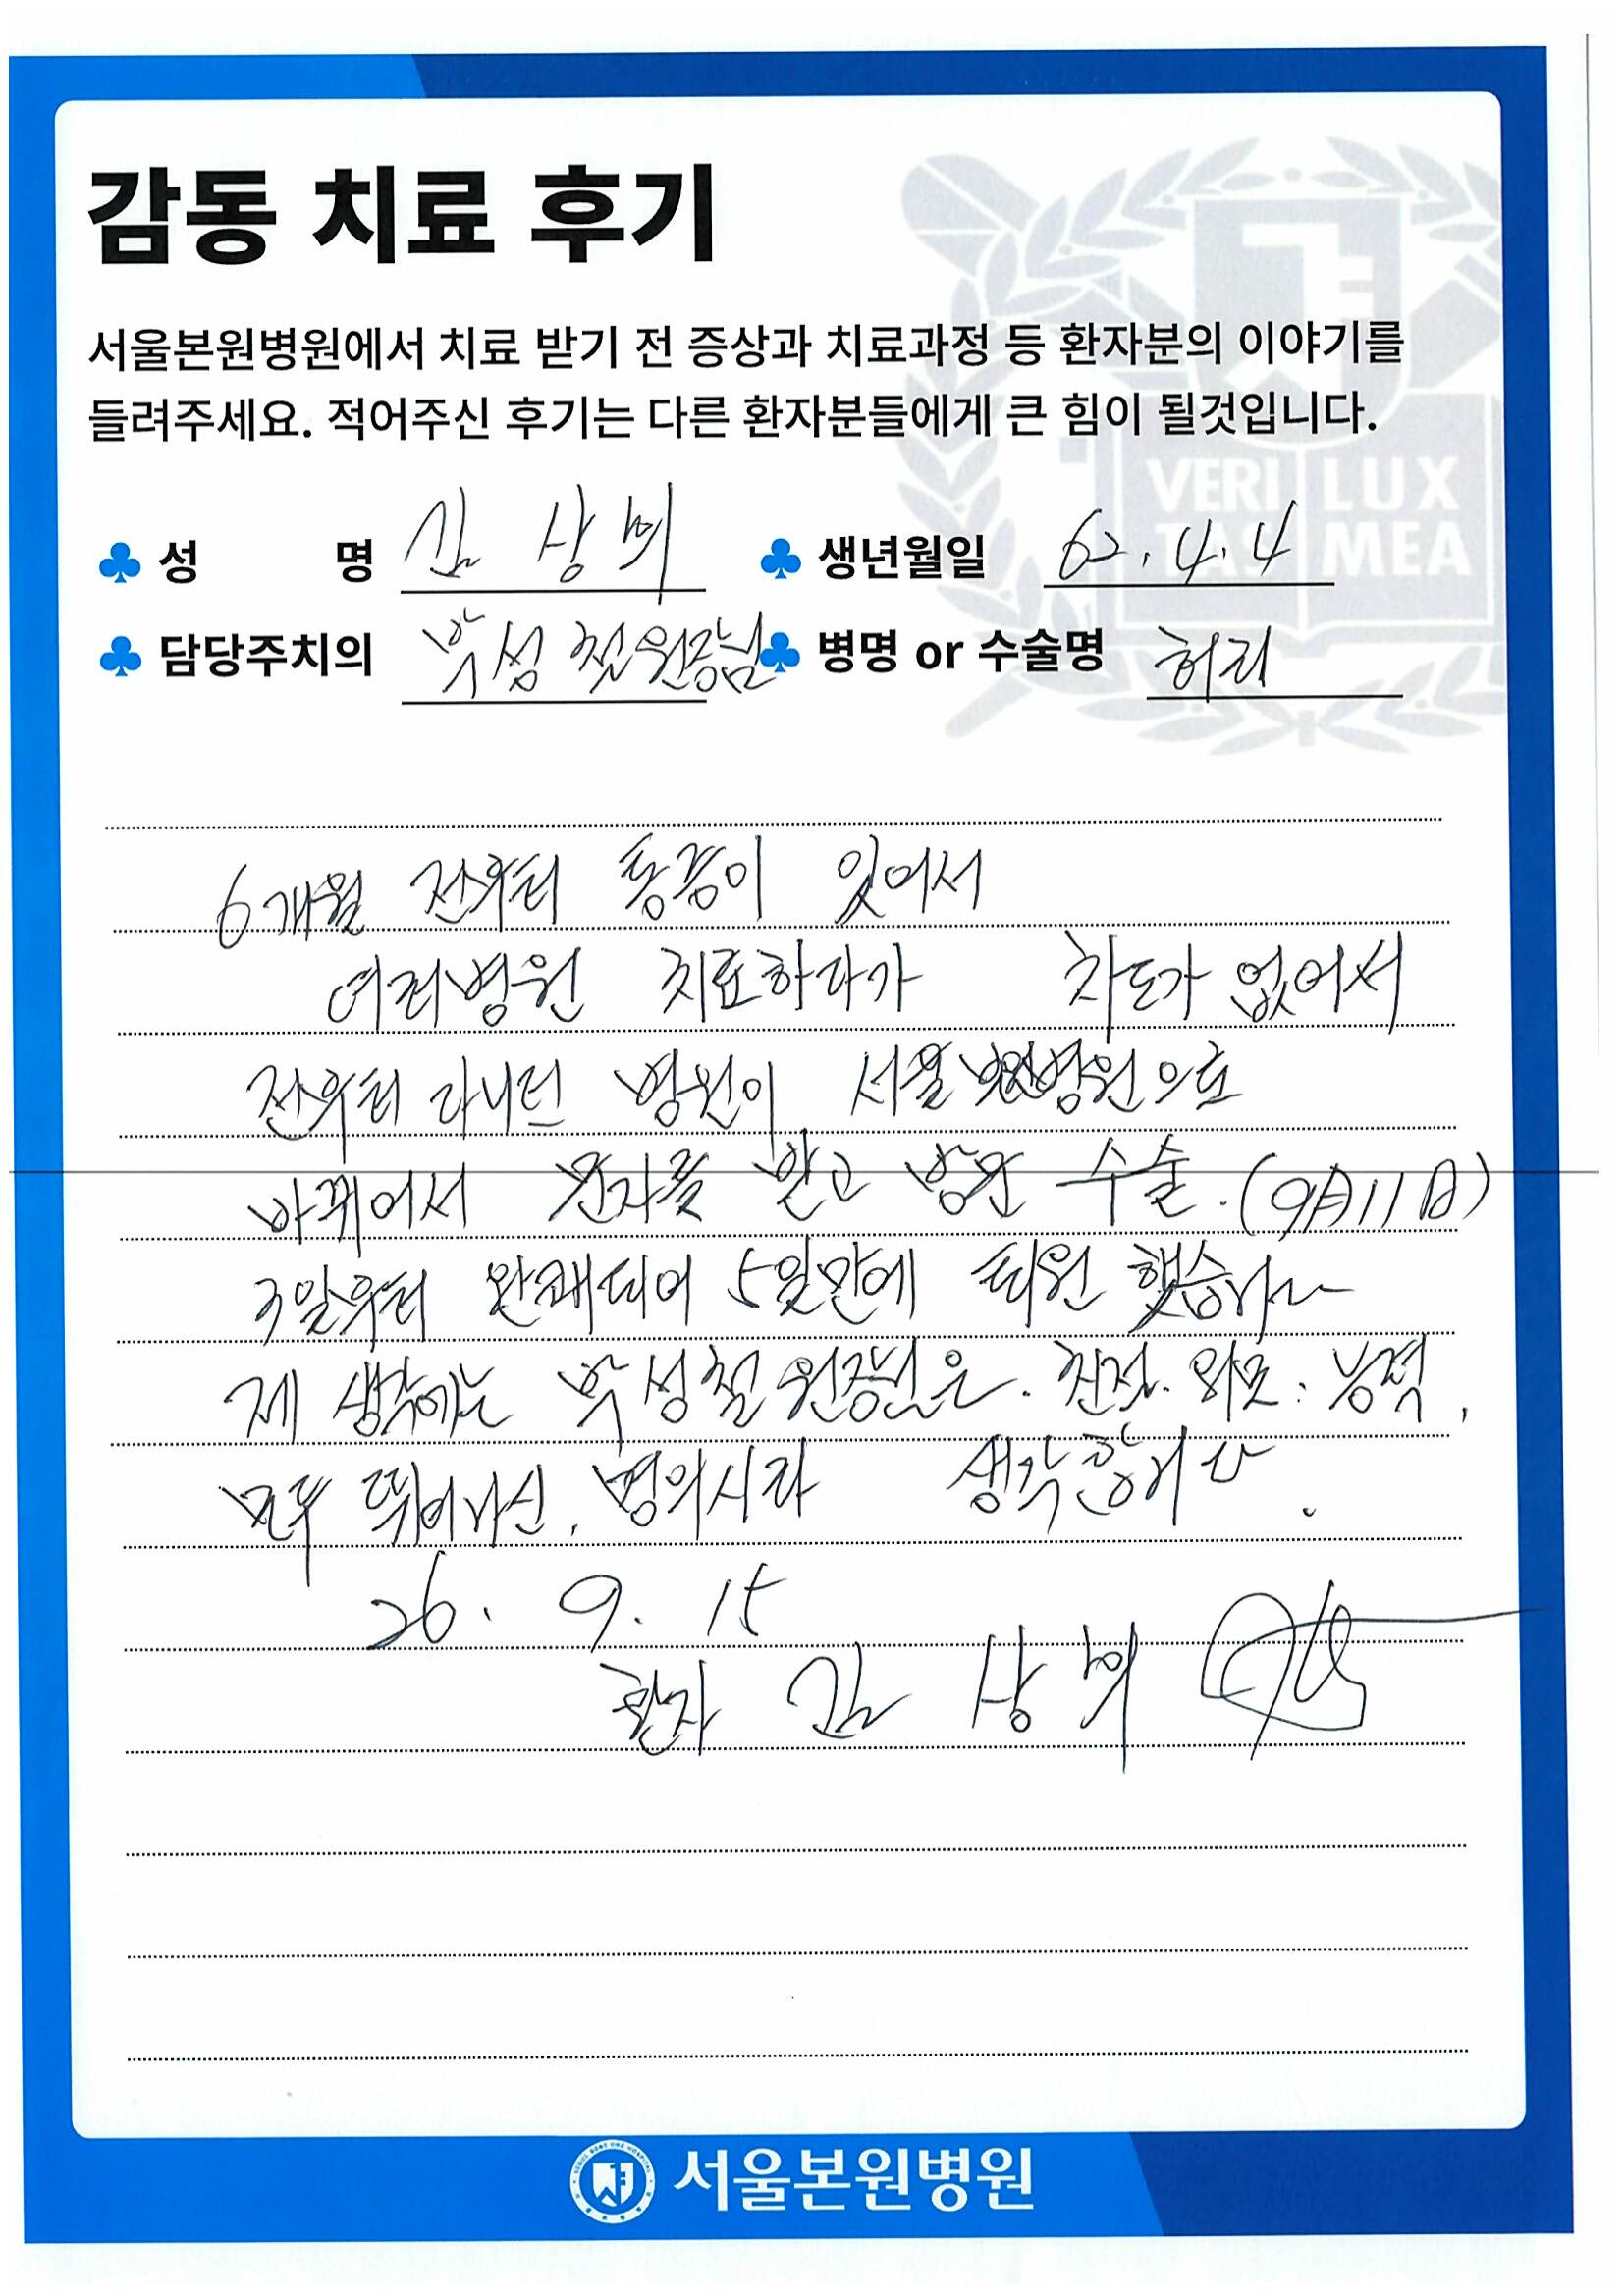 감동 치료 후기
서울본원병원에서 치료 받기 전 증상과 치료과정 등 환자분의 이야기를
들려주세요. 적어주신 후기는 다른 환자분들에게 큰 힘이 될것입니다.
성 명 김 상 생년월일 62. 4. 4
담당주치의 박성철원장님 병명 or 수술명 허리
VERI LUX
TAS MEA
6개월 전부터 통증이 있어서
여러병원 치료하다가 차도가 없어서
전부터 다니던 병원이 서울 병원으로
바뀌어서 문자를 받고 방문 수술. (9月11日)
3일부터 완쾌되어 5일만에 퇴원 했습니다
제 생각에는 박성철원장님은. 친절. 외모. 능력,
모두 뛰어나신, 명의시라 생각합니다.
26. 9. 15
환자 김 상
서울본원병원